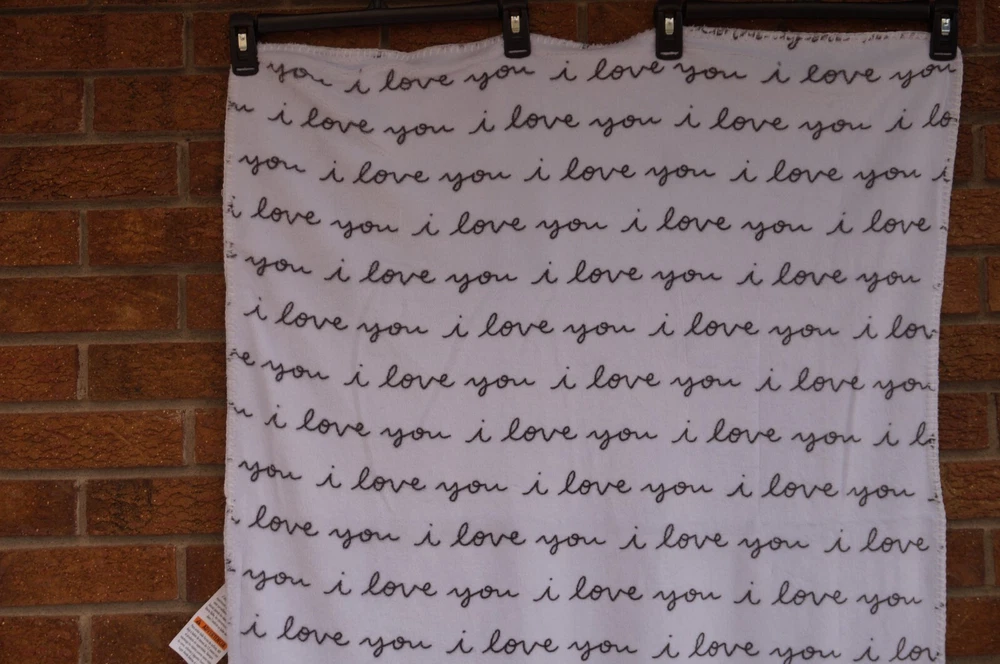 you i love you i love you i love you
i love you i love you i love you i lo
you i love you i love you i love you i
i love you i love you i love you i love
you i love you i love you i love you
i love you i love you i love you i lov
e you i love you i love you i love you
i love you i love you i love you i l
you i love you i love you i love you
love you i love you i love you i love
you i love you i love you i love you
i love you i love you i love you i lov